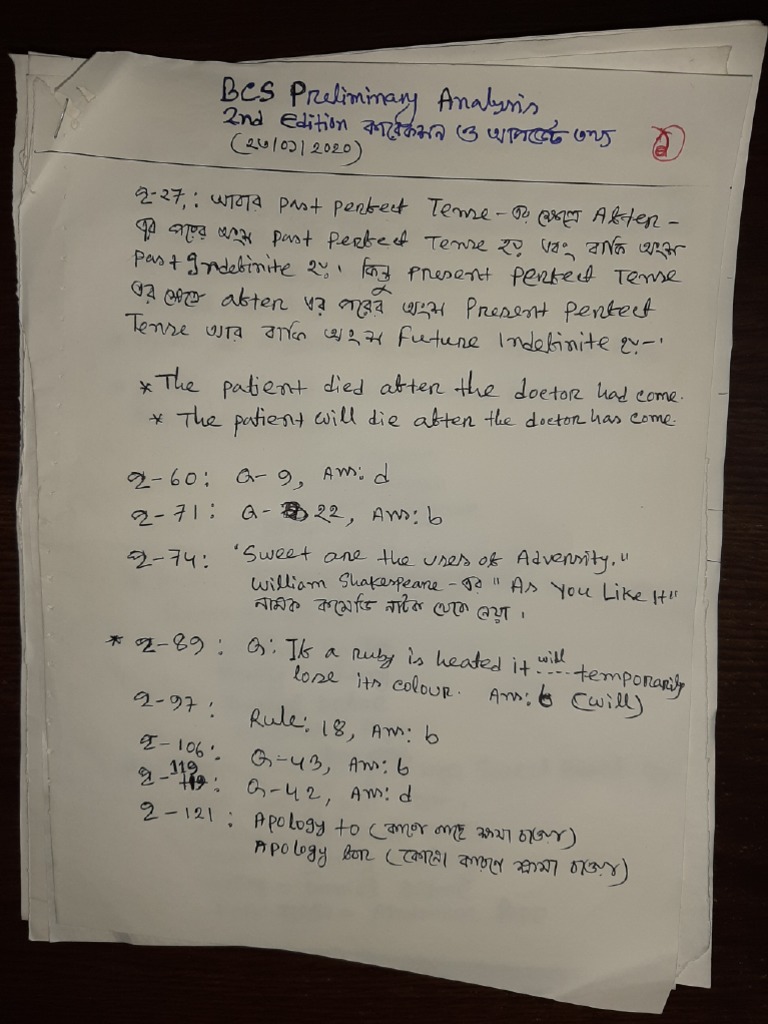 BCS Preliminary Analysis
2nd Edition কারেকশন ও আপডেট তথ্য
(২৩/০১/2020)
পৃ-27: আবার past perfect Tense-এর ক্ষেত্রে After-
এর পরের অংশ past perfect Tense হয় এবং বাকি অংশ
past Indefinite হয়। কিন্তু present perfect Tense
এর ক্ষেত্রে after এর পরের অংশ Present perfect
Tense আর বাকি অংশ Future Indefinite হয়-।
* The patient died after the doctor had come.
* The patient will die after the doctor has come.
পৃ-60: Q-9, Ans: d
পৃ-71: Q-22, Ans: b
পৃ-74: "Sweet are the uses of Adversity."
William Shakespeare-এর "As You Like It"
নামক কমেডি নাটক থেকে নেয়া।
* পৃ-89: Q: If a ruby is heated it will .... temporarily
lose its colour. Ans: b (will)
পৃ-97: Rule: 18, Ans: b
পৃ-106: Q-43, Ans: b
পৃ-119: Q-42, Ans: d
পৃ-121: Apology to (কারো কাছে ক্ষমা চাওয়া)
Apology for (কোনো কারণে ক্ষমা চাওয়া)